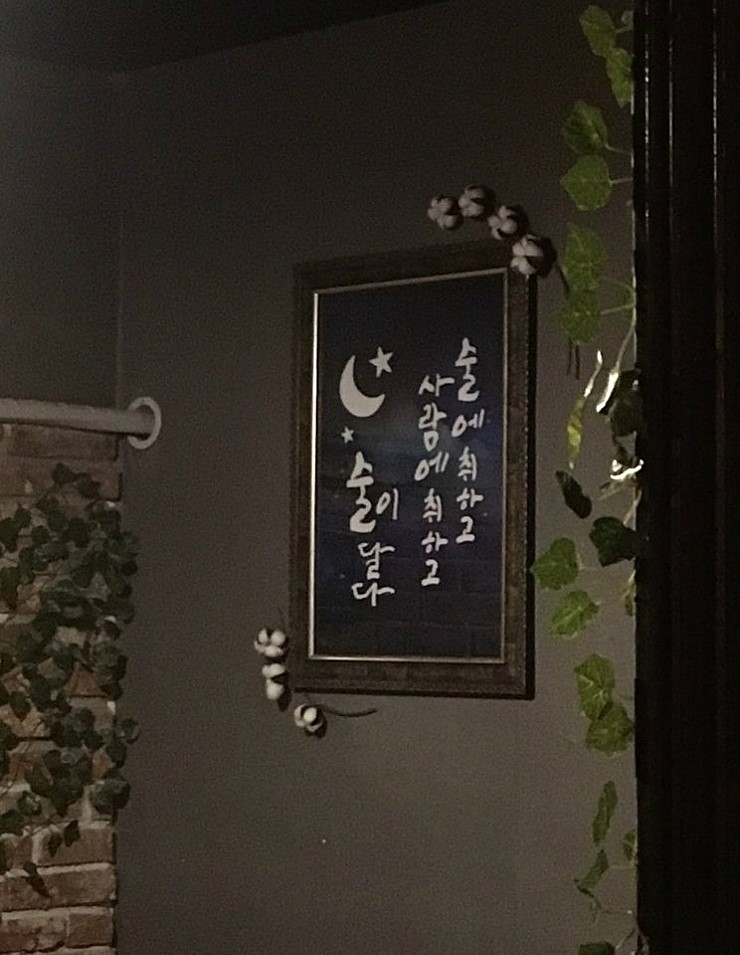 술에 취하고
사람에 취하고
술이 달다